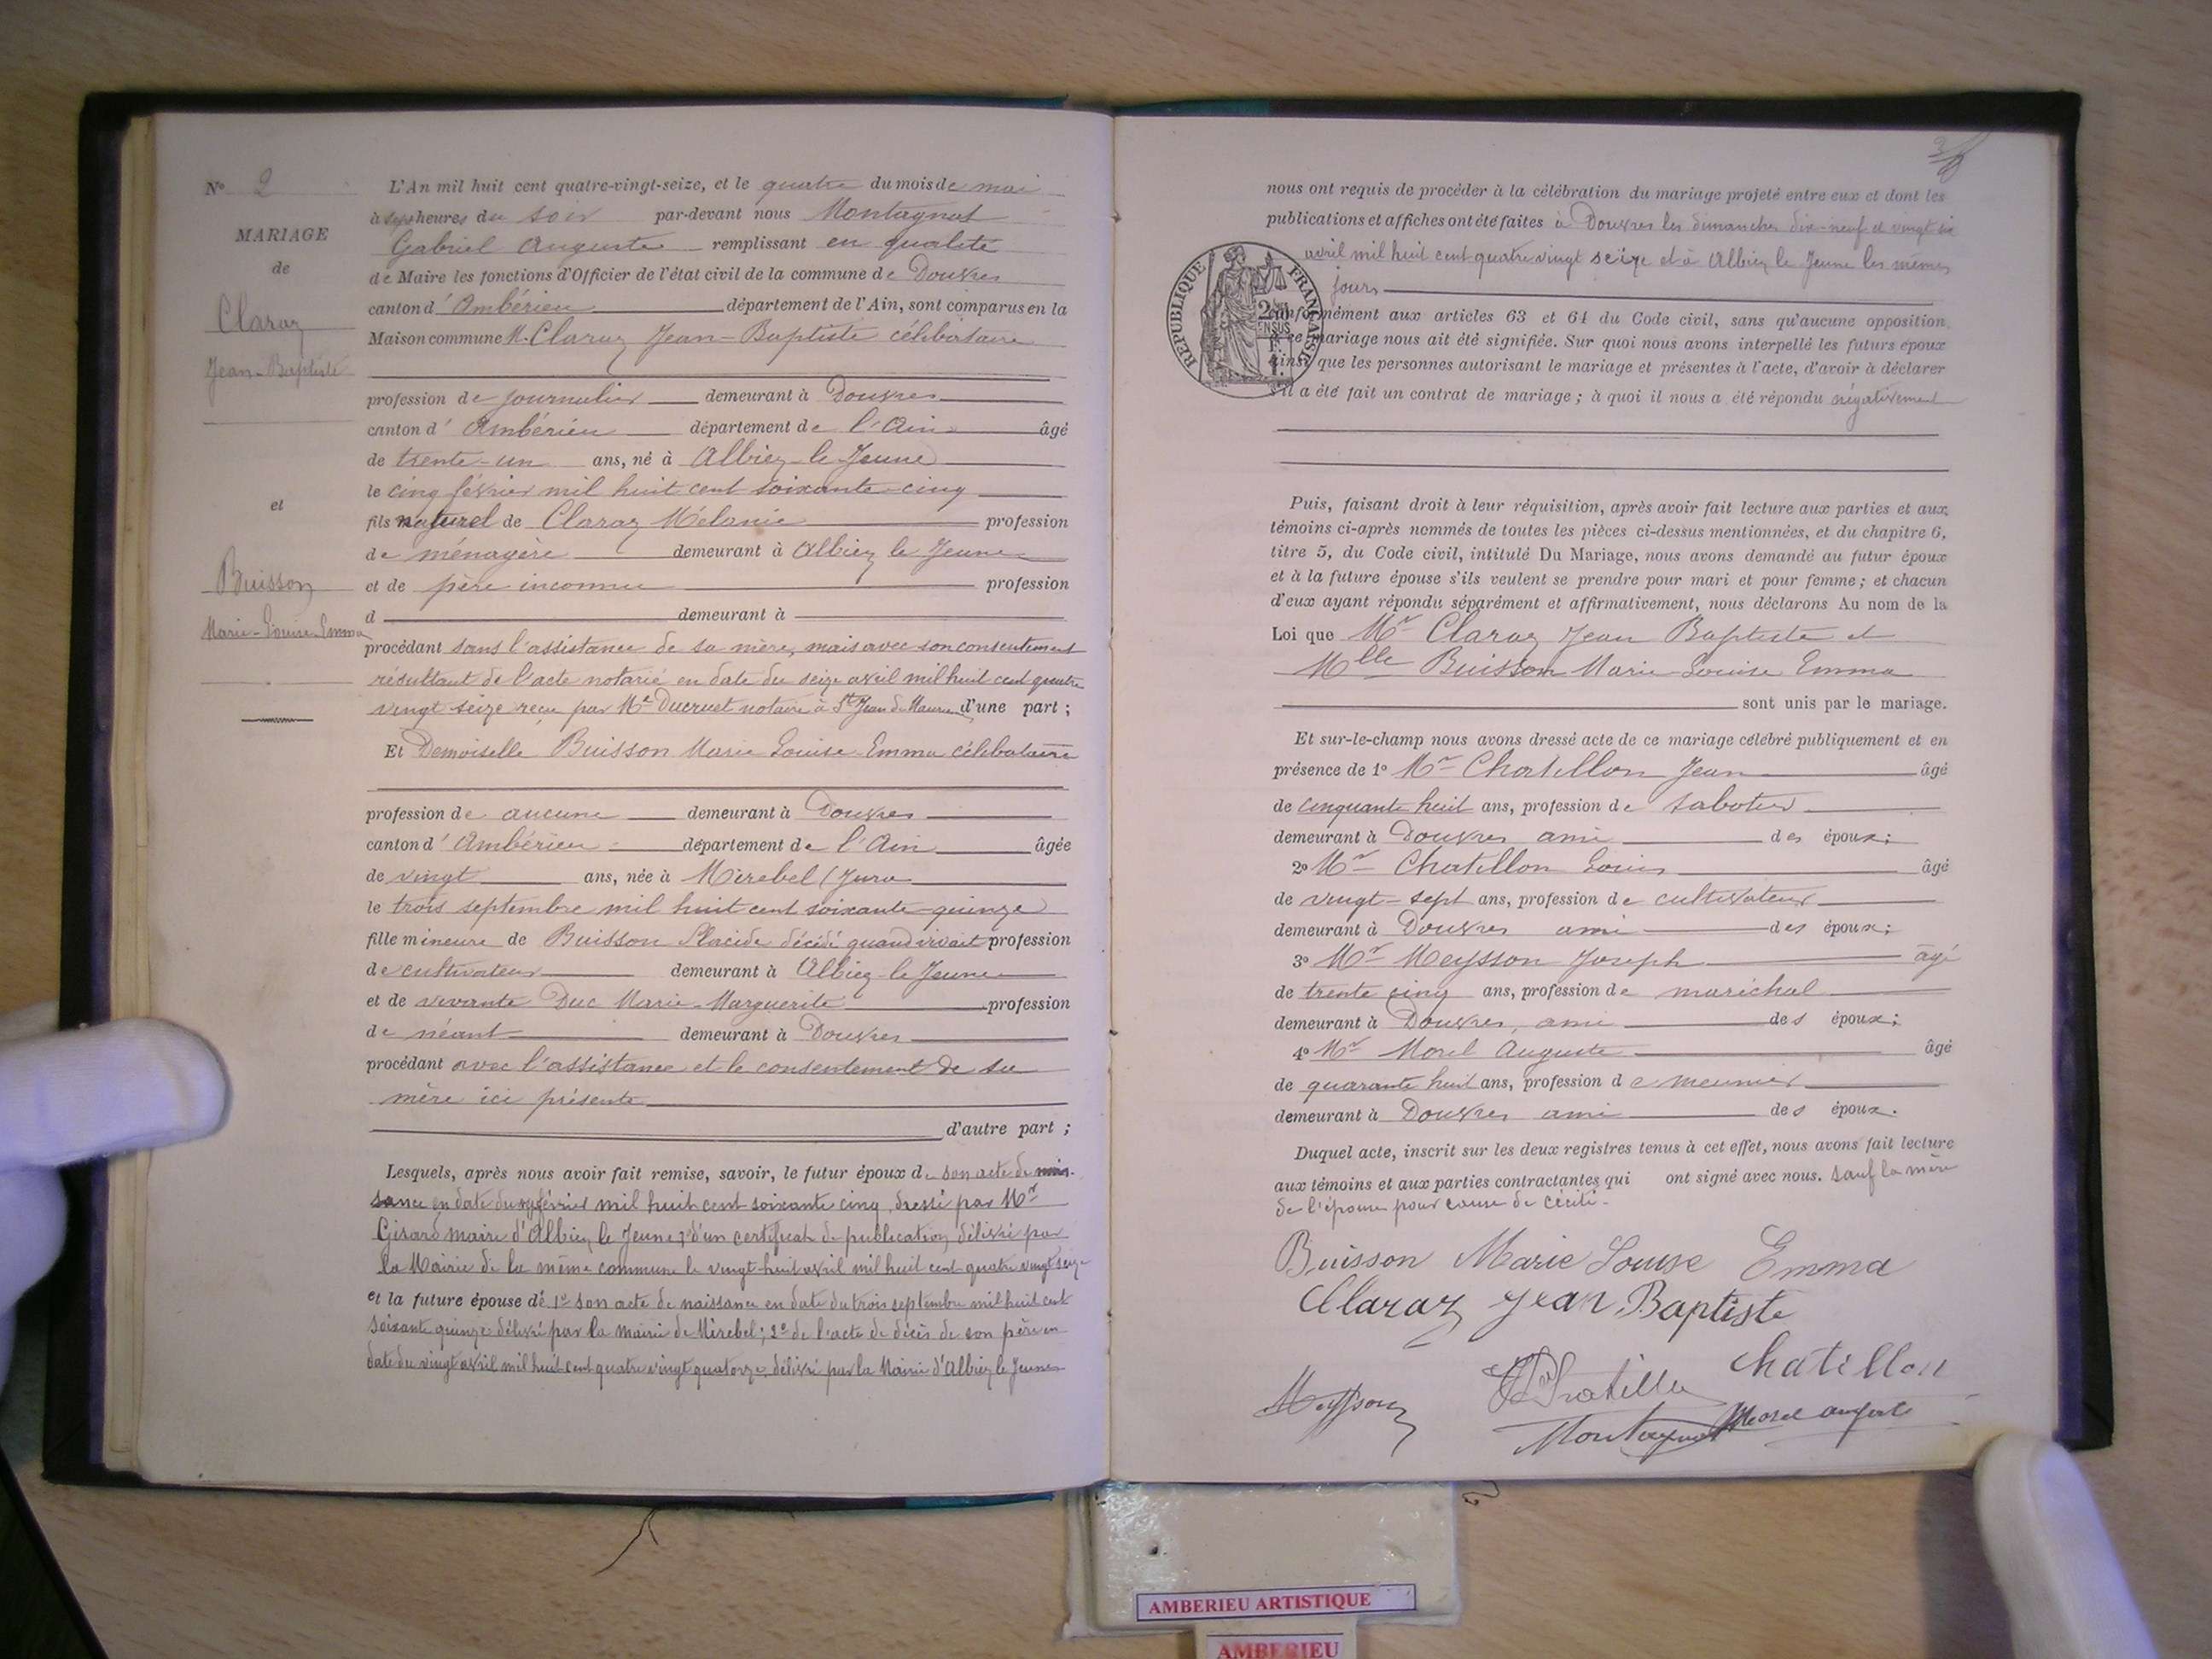 N° 2
MARIAGE
de
Claraz
Jean-Baptiste
et
Buisson
Marie-Louise-Emma
L'An mil huit cent quatre-vingt-seize, et le quatre du mois de mai
à sept heures du soir par-devant nous Montagnat
Gabriel Auguste remplissant en qualité
de Maire les fonctions d'Officier de l'état civil de la commune de Douvres
canton d'Ambérieu département de l'Ain, sont comparus en la
Maison commune M. Claraz Jean-Baptiste célibataire
profession de journalier demeurant à Douvres
canton d'Ambérieu département de l'Ain âgé
de trente-un ans, né à Albiez-le-Jeune
le cinq février mil huit cent soixante-cinq
fils naturel de Claraz Mélanie profession
de ménagère demeurant à Albiez le Jeune
et de père inconnu profession
d demeurant à
procédant sans l'assistance de sa mère, mais avec son consentement
résultant de l'acte notarié en date du seize avril mil huit cent quatre
vingt seize reçu par Me Ducruet notaire à St Jean de Maurienne d'une part ;
Et Demoiselle Buisson Marie Louise-Emma célibataire
profession de aucune demeurant à Douvres
canton d'Ambérieu département de l'Ain âgée
de vingt ans, née à Mirebel (Jura
le trois septembre mil huit cent soixante-quinze
fille mineure de Buisson Placide décédé quand vivait profession
de cultivateur demeurant à Albiez-le-Jeune
et de vivante Duc Marie-Marguerite profession
de néant demeurant à Douvres
procédant avec l'assistance et le consentement de sa
mère ici présente
d'autre part ;
Lesquels, après nous avoir fait remise, savoir, le futur époux de son acte de nais-
sance en date du février mil huit cent soixante cinq, dressé par Mr
Girard maire d'Albiez le Jeune; d'un certificat de publication délivré par
la Mairie de la même commune le vingt-huit avril mil huit cent quatre vingt seize
et la future épouse de 1° son acte de naissance en date du trois septembre mil huit cent
soixante quinze délivré par la mairie de Mirebel; 2° de l'acte de décès de son père en
date du vingt avril mil huit cent quatre vingt quatorze, délivré par la Mairie d'Albiez le Jeune
nous ont requis de procéder à la célébration du mariage projeté entre eux et dont les
publications et affiches ont été faites à Douvres les dimanches dix-neuf et vingt six
avril mil huit cent quatre vingt seize et à Albiez le Jeune les mêmes
jours
RÉPUBLIQUE FRANÇAISE
conformément aux articles 63 et 64 du Code civil, sans qu'aucune opposition
à ce mariage nous ait été signifiée. Sur quoi nous avons interpellé les futurs époux
ainsi que les personnes autorisant le mariage et présentes à l'acte, d'avoir à déclarer
s'il a été fait un contrat de mariage ; à quoi il nous a été répondu négativement
Puis, faisant droit à leur réquisition, après avoir fait lecture aux parties et aux
témoins ci-après nommés de toutes les pièces ci-dessus mentionnées, et du chapitre 6,
titre 5, du Code civil, intitulé Du Mariage, nous avons demandé au futur époux
et à la future épouse s'ils veulent se prendre pour mari et pour femme ; et chacun
d'eux ayant répondu séparément et affirmativement, nous déclarons Au nom de la
Loi que Mr Claraz Jean Baptiste et
Mlle Buisson Marie Louise Emma
sont unis par le mariage.
Et sur-le-champ nous avons dressé acte de ce mariage célébré publiquement et en
présence de 1° Mr Chatillon Jean âgé
de cinquante huit ans, profession de sabotier
demeurant à Douvres ami des époux ;
2° Mr Chatillon Louis âgé
de vingt-sept ans, profession de cultivateur
demeurant à Douvres ami des époux ;
3° Mr Meysson Joseph âgé
de trente cinq ans, profession de maréchal
demeurant à Douvres, ami des époux ;
4° Mr Morel Auguste âgé
de quarante huit ans, profession de meunier
demeurant à Douvres ami des époux.
Duquel acte, inscrit sur les deux registres tenus à cet effet, nous avons fait lecture
aux témoins et aux parties contractantes qui ont signé avec nous. sauf la mère
de l'épouse pour cause de cécité.
Buisson Marie Louise Emma
Claraz Jean Baptiste
Chatillon
Meysson
Montagnat
Morel auguste
AMBERIEU ARTISTIQUE
AMBERIEU